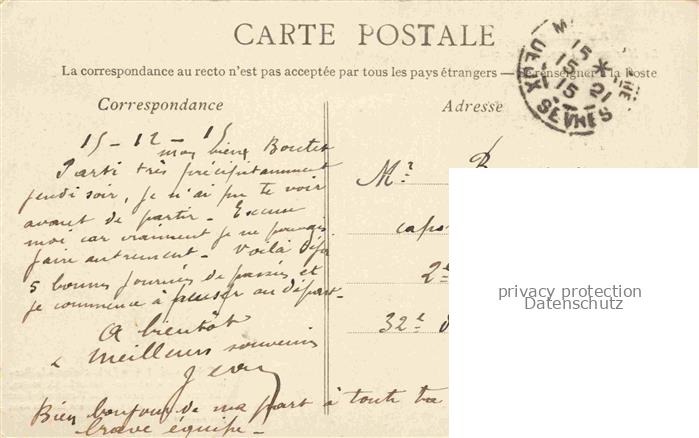 CARTE POSTALE
La correspondance au recto n'est pas acceptée par tous les pays étrangers — Se renseigner à la Poste
Correspondance
Adresse
DEUX SEVRES
15 - 12 - 15
mon vieux Boutet
Parti très précipitamment
jeudi soir, je n'ai pu te voir
avant de partir - Excuse
moi car vraiment je ne pouvais
faire autrement - Voilà déjà
5 bonnes journées de passées et
je commence à penser au départ -
A bientôt
meilleurs souvenirs
Jean
Bien bonjour de ma part à toute ta
brave équipe -
Mr
2e
32e
privacy protection
Datenschutz